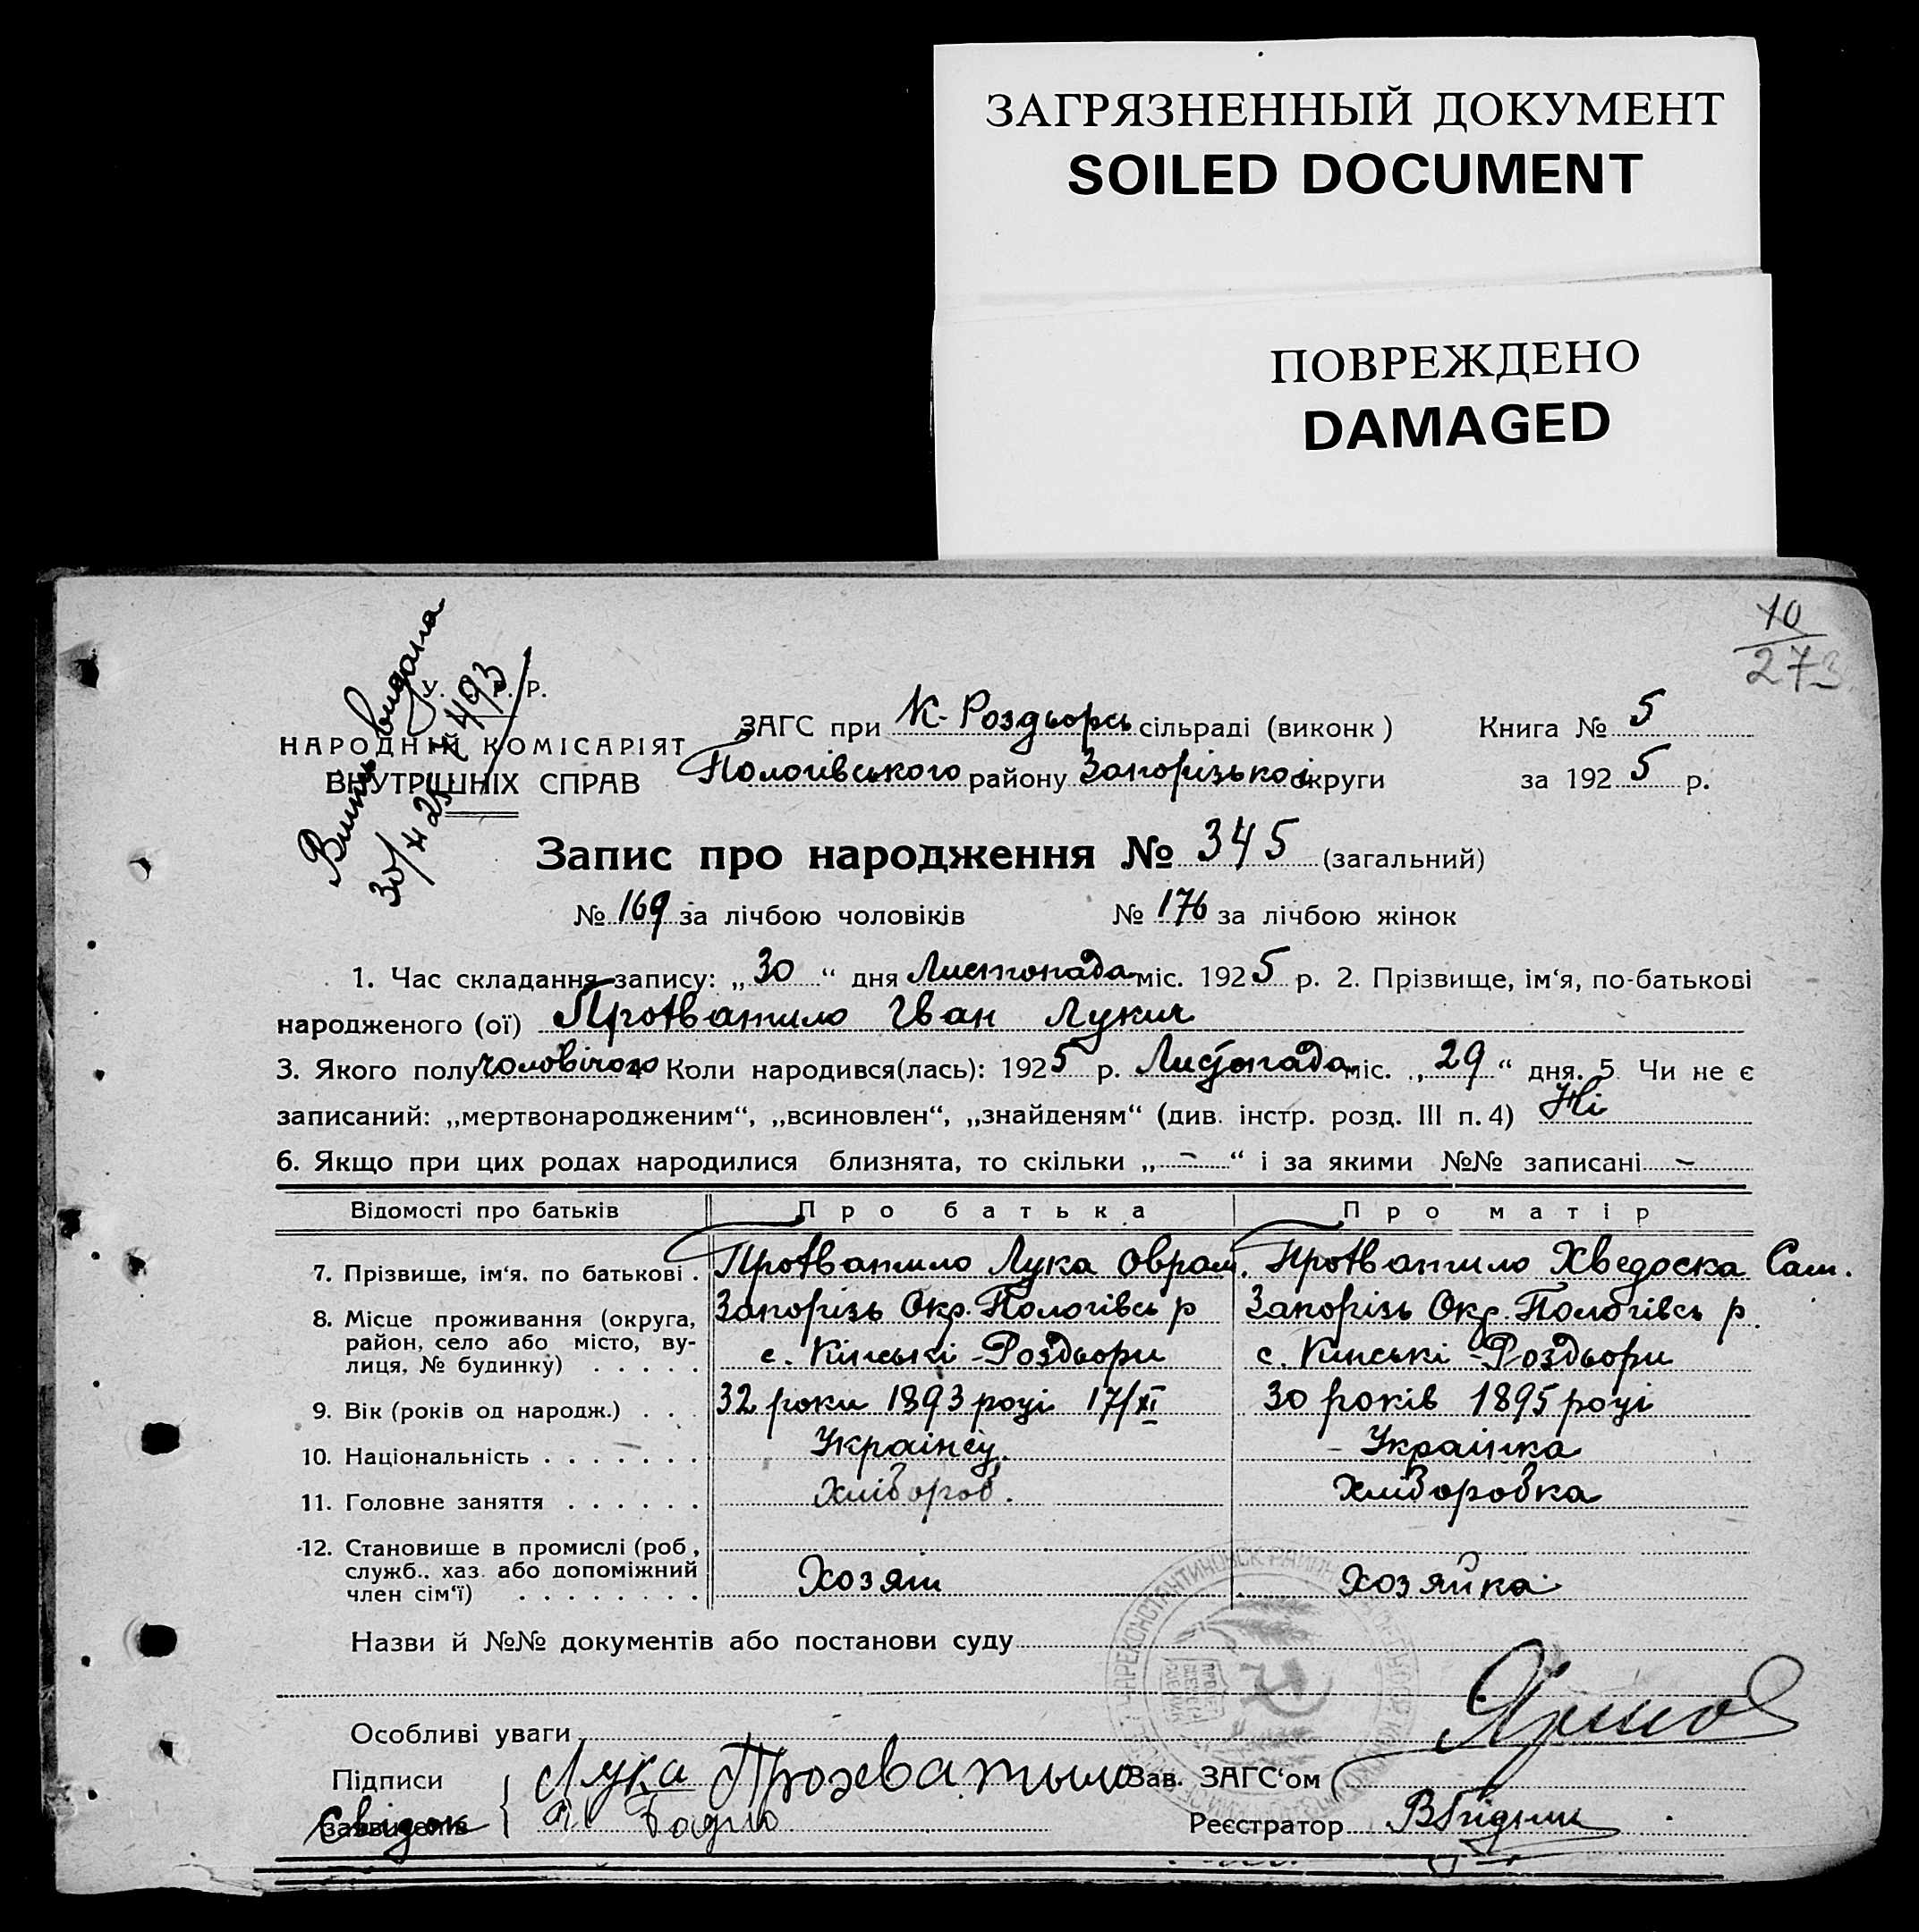 ЗАГРЯЗНЕННЫЙ ДОКУМЕНТ
SOILED DOCUMENT
ПОВРЕЖДЕНО
DAMAGED
10
273
Випись видана
30/XI 25 № 493
У. Р. Р.
НАРОДНІЙ КОМІСАРІЯТ
ВНУТРІШНІХ СПРАВ
ЗАГС при К-Роздорсь сільраді (виконк) Книга № 5
Пологівського району Запорізькоі округи за 1925 р.
Запис про народження № 345 (загальний)
№ 169 за лічбою чоловіків № 176 за лічбою жінок
1. Час складання запису: „30“ дня Листопада міс. 1925 р. 2. Прізвище, ім‘я, по-батькові
народженого (ої) Протватило Іван Лукич
3. Якого полу чоловічого 4 Коли народився(лась): 1925 р. Листопада міс. „29“ дня. 5. Чи не є
записаний: „мертвонародженим“, „всиновлен“, „знайденям“ (див. інстр. розд. III п. 4) Ні
6. Якщо при цих родах народилися близнята, то скільки „-“ і за якими №№ записані -
Відомості про батьків Про батька Про матір
7. Прізвище, ім‘я, по батькові. Протватило Лука Оврам. Протватило Хведоска Сам.
8. Місце проживання (округа, район, село або місто, вулиця, № будинку) Запорізь Окр. Пологівсь р Запорізь Окр. Пологівсь р.
с. Кінські-Роздьори с. Кинські-Роздьори
9. Вік (років од народж.) 32 роки 1893 році 17/XI 30 років 1895 році
10. Національність Українець. Українка
11. Головне заняття Хлібороб. Хліборобка
12. Становище в промислі (роб, служб., хаз. або допоміжний член сім‘ї) Хозяін Хозяйка
Назви й №№ документів або постанови суду
Особливі уваги
Підписи Лука Прохватыло Зав. ЗАГС‘ом
свідок Реєстратор